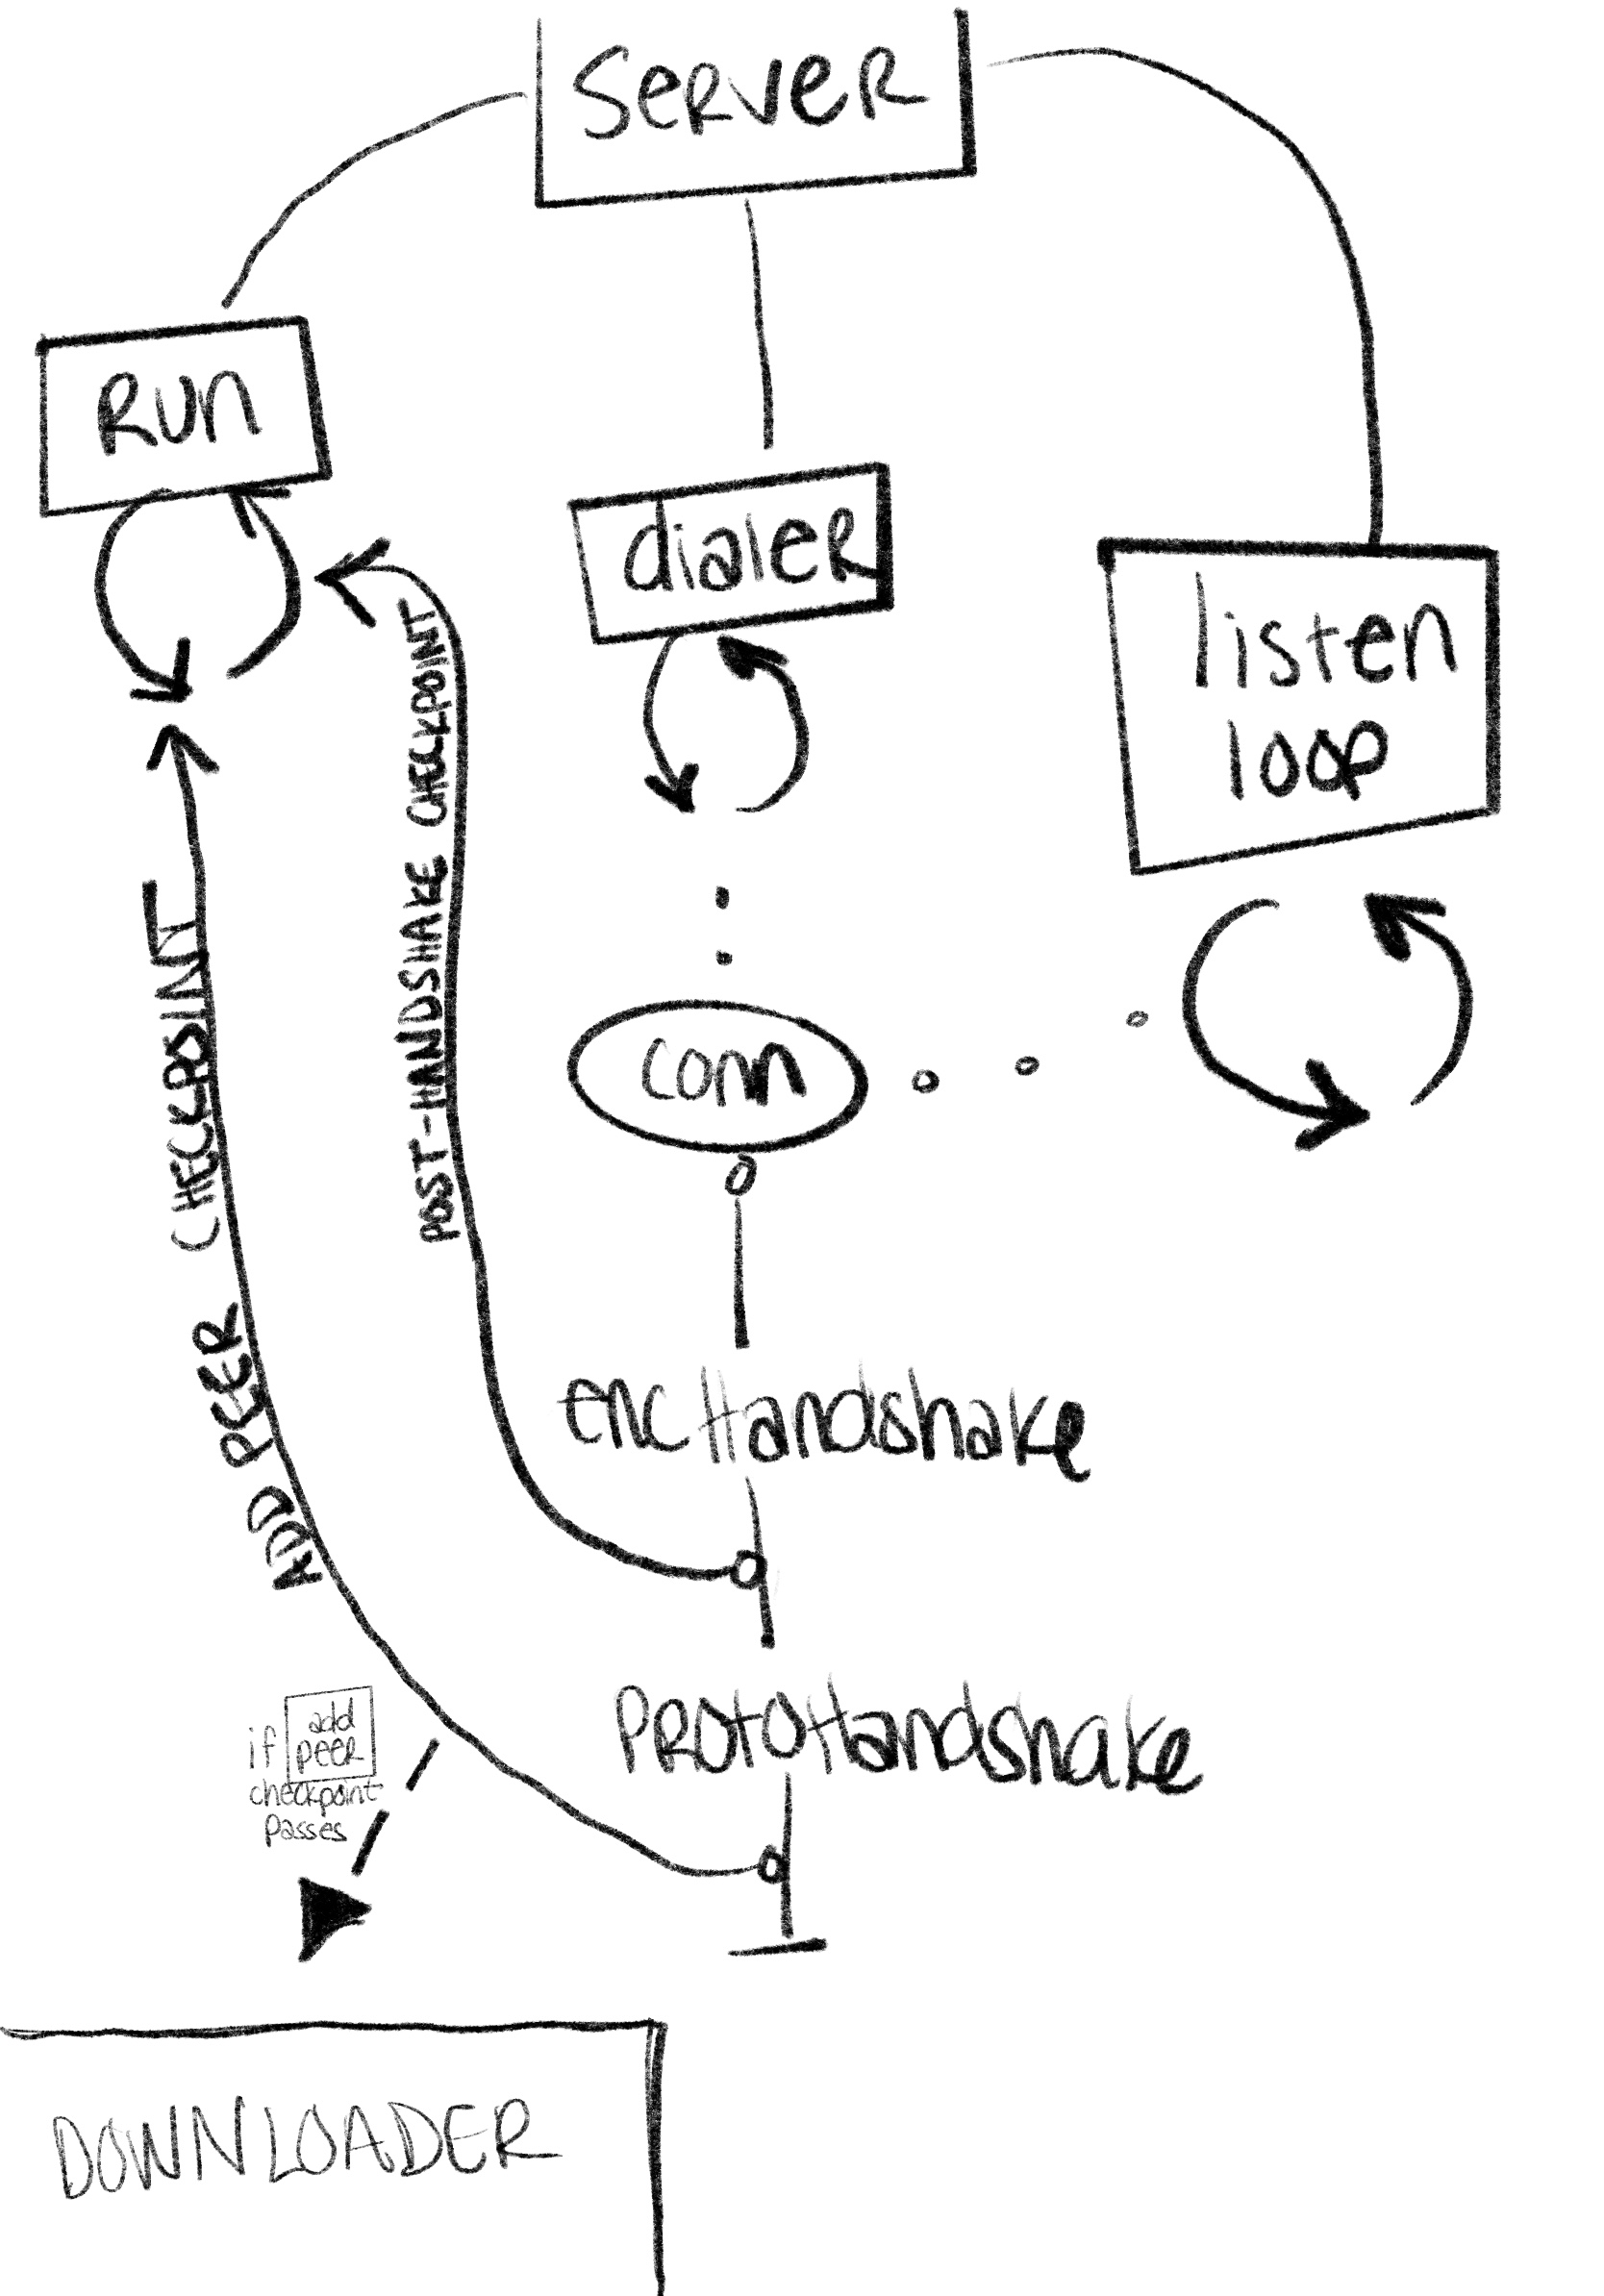 Server
Run
dialer
listen
loop
POST-HANDSHAKE CHECKPOINT
conn
ADD PEER CHECKPOINT
encHandshake
ProtoHandshake
if add
peer
checkpoint
passes
DOWNLOADER